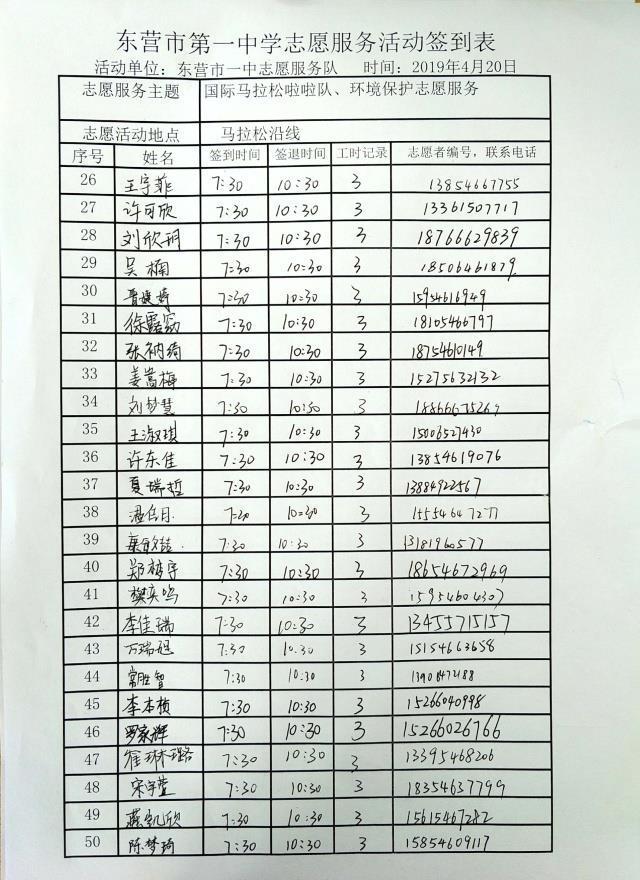 东营市第一中学志愿服务活动签到表
活动单位：东营市一中志愿服务队 时间：2019年4月20日
志愿服务主题 国际马拉松啦啦队、环境保护志愿服务
志愿活动地点 马拉松沿线
序号 姓名 签到时间 签退时间 工时记录 志愿者编号，联系电话
26 王宇菲 7:30 10:30 3 13854667755
27 许可欣 7:30 10:30 3 13361507717
28 刘欣玥 7:30 10:30 3 18766629839
29 吴楠 7:30 10:30 3 18506461879
30 7:30 10:30 3 15954616949
31 徐露 7:30 10:30 3 18105466797
32 张 7:30 10:30 3 18754610149
33 姜嵩梅 7:30 10:30 3 15275632132
34 刘梦慧 7:30 10:30 3
35 王淑琪 7:30 10:30 3 15006527430
36 许东佳 7:30 10:30 3 13854619076
37 夏瑞哲 7:30 10:30 3 13884922567
38 7:30 10:30 3 15554647277
39 7:30 10:30 3 13181960577
40 郑 宇 7:30 10:30 3 18654672969
41 樊奕鸣 7:30 10:30 3 15954604307
42 李佳瑞 7:30 10:30 3 13455715157
43 万瑞 7:30 10:30 3 15154663658
44 常胜智 7:30 10:30 3
45 李本桢 7:30 10:30 3 15266040998
46 罗家辉 7:30 10:30 3 15266026766
47 崔琳璐 7:30 10:30 3 13395468206
48 宋宇萱 7:30 10:30 3 18354637799
49 蒋凯欣 7:30 10:30 3 15615467282
50 陈梦琦 7:30 10:30 3 15854609117